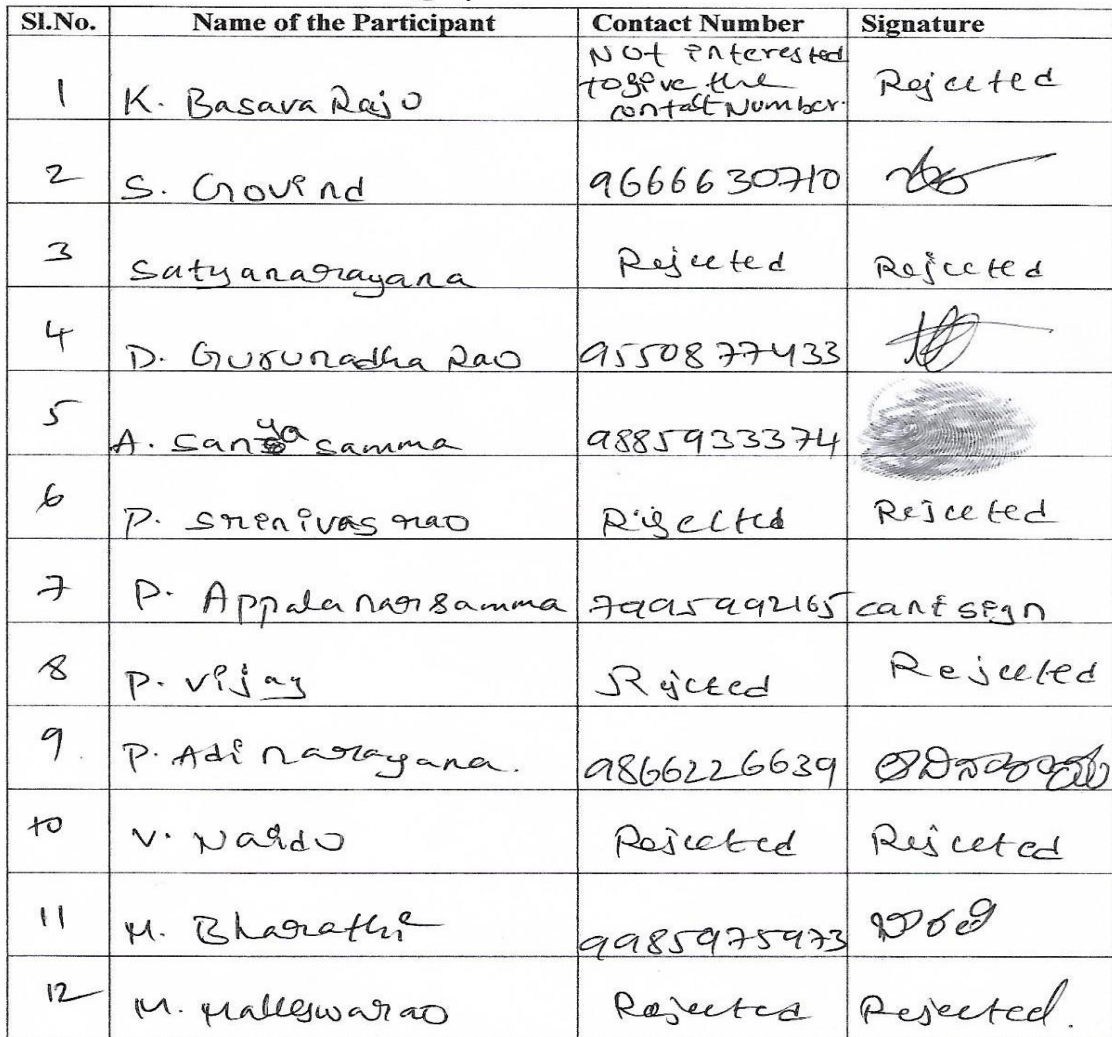 Sl.No. Name of the Participant Contact Number Signature
1 K. Basava Raju Not interested to give the contact Number. Rejected
2 S. Govind 9666630710
3 Satyanarayana Rejected Rejected
4 D. Gurunadha Rao 9550877433
5 A. Sanyasamma 9885933374
6 P. Srenivas rao Rigelted Rejceted
7 P. Appala narsamma 7995992165 cant sign
8 P. Vijay Rejceed Rejeeted
9. P. Adi narayana. 9866226639
10 V. Naidu Rejceted Rejceted
11 M. Bharathi 9985975973 భారతి
12 M. Malleswarao Rejected Rejected.